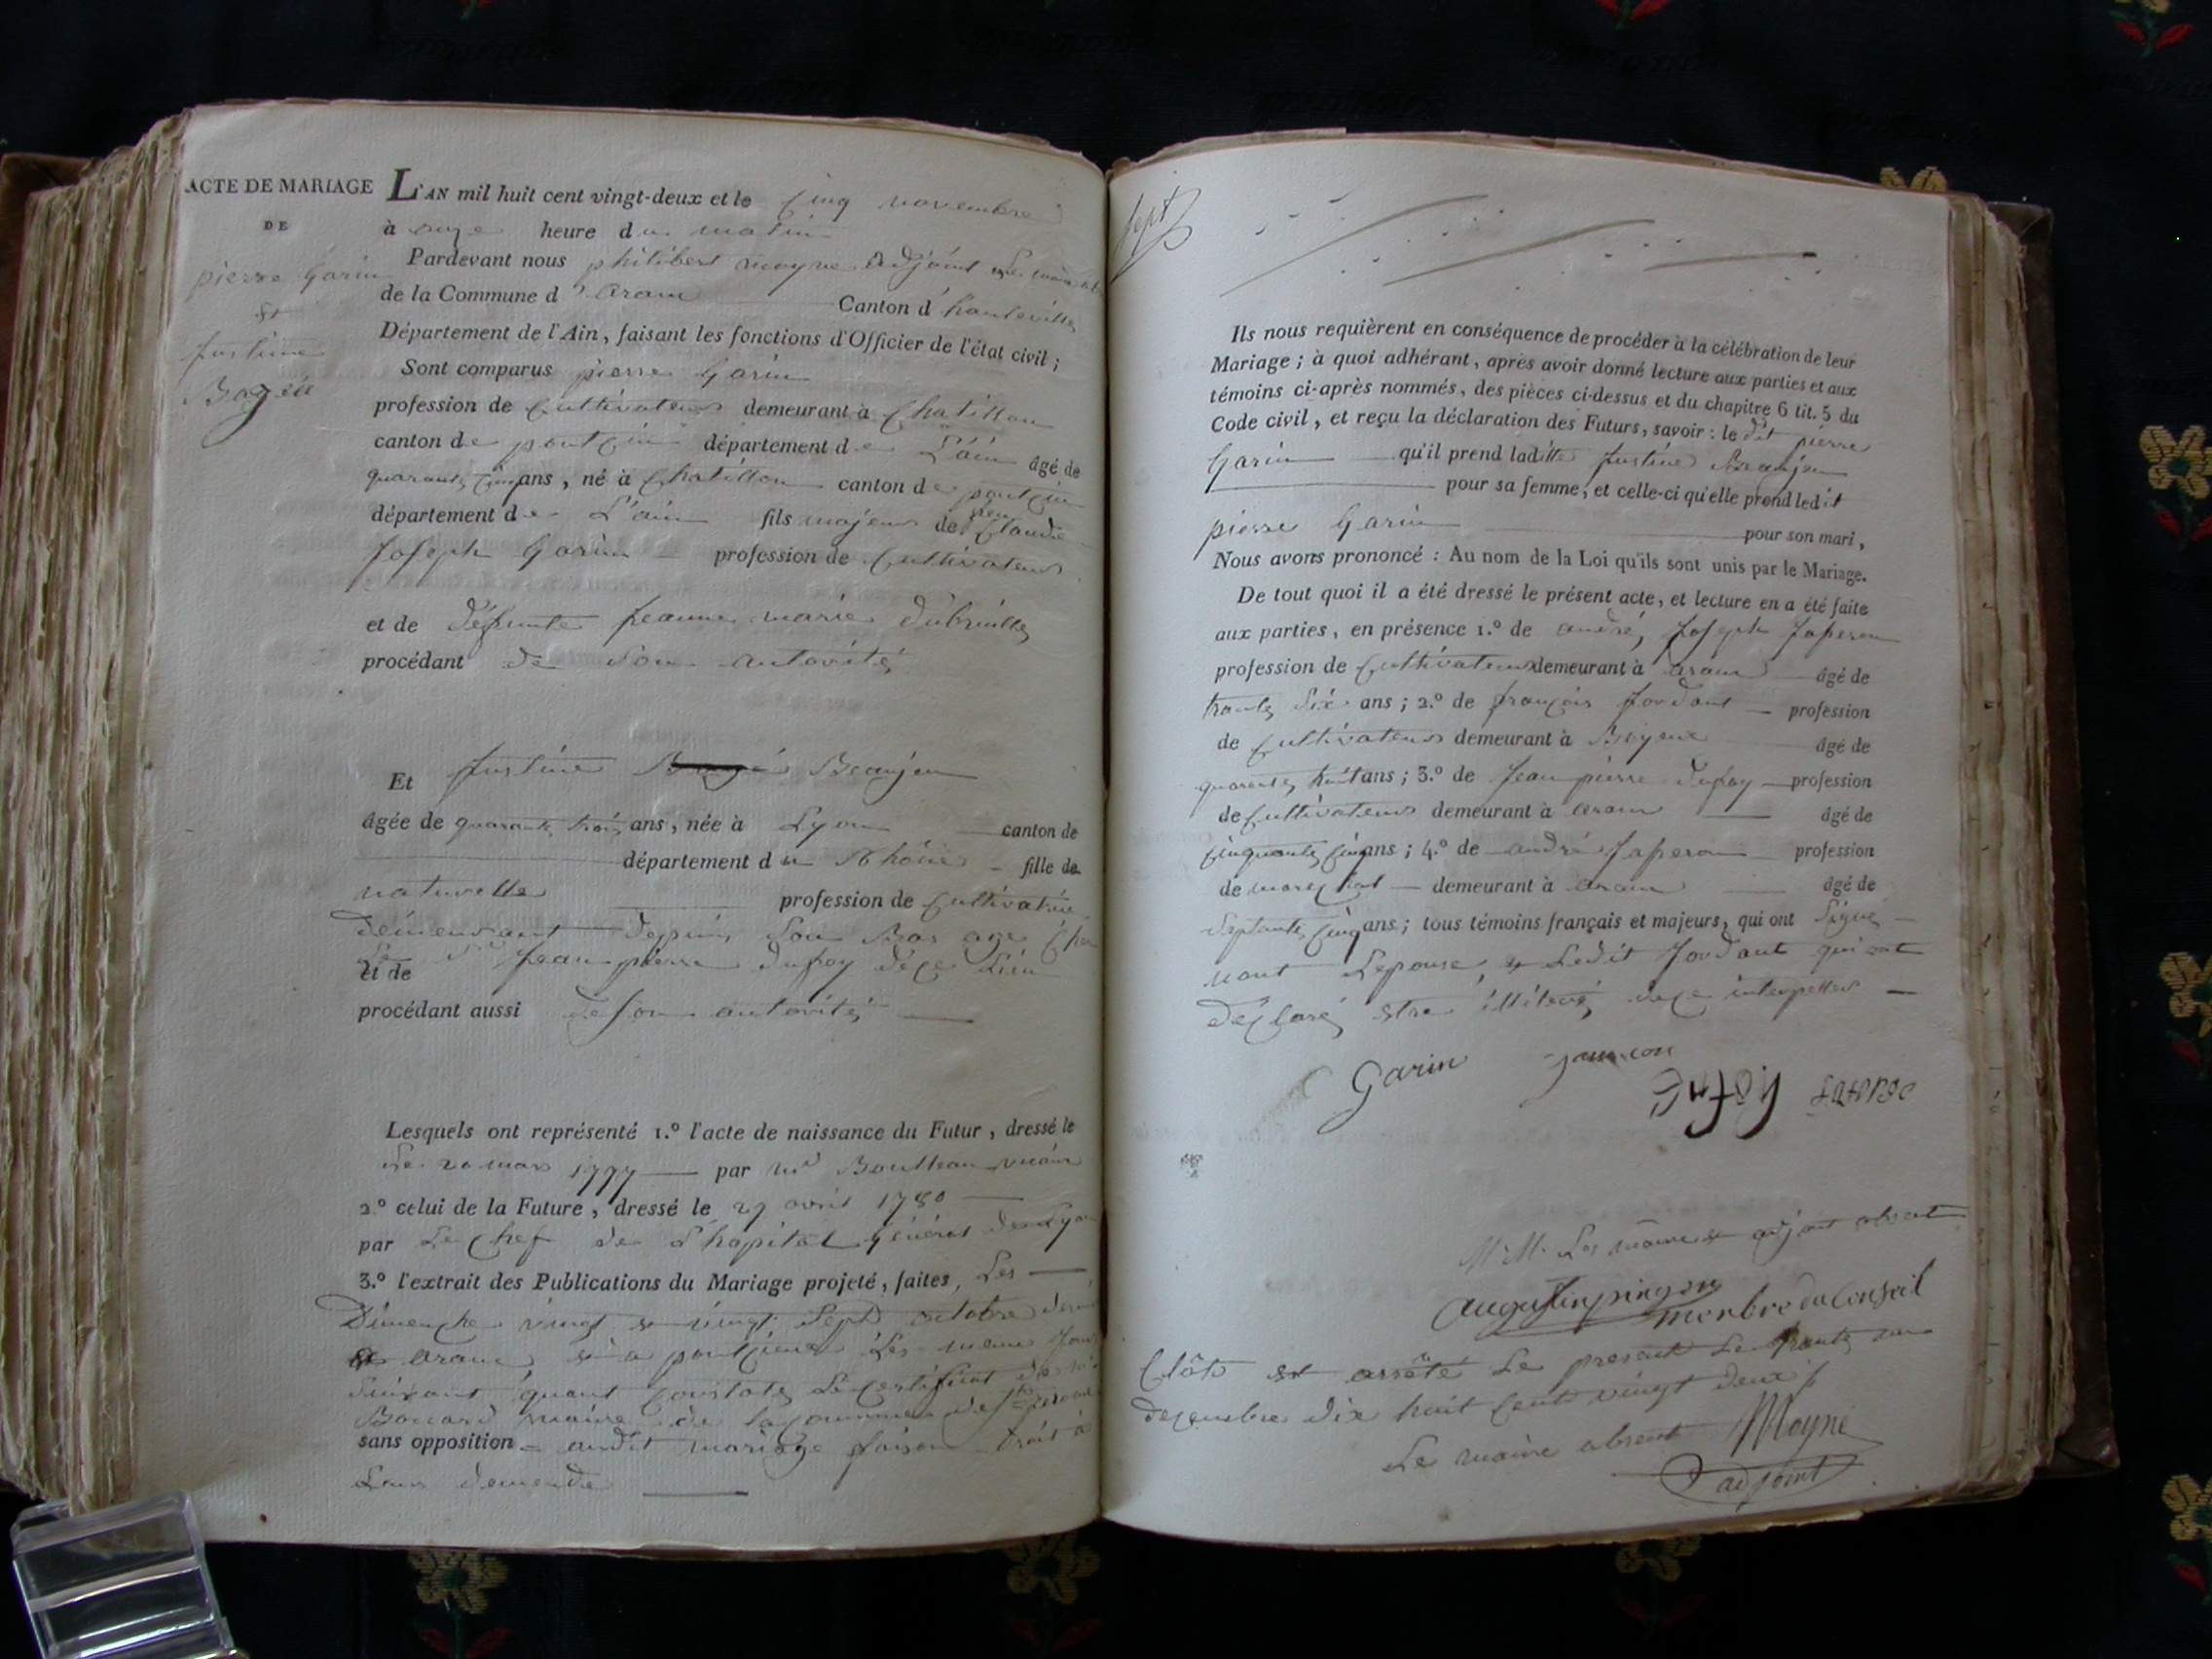 ACTE DE MARIAGE
DE
pierre Garin
et
justine
Bagéu
L'AN mil huit cent vingt-deux et le cinq novembre
à onze heure du matin
Pardevant nous philibert moyne adjoint
de la Commune d'aranc Canton d'hauteville
Département de l'Ain, faisant les fonctions d'Officier de l'état civil ;
Sont comparus pierre Garin
profession de Cultivateur demeurant à Chatillon
canton de pontcin département de L'ain âgé de
quarante cinq ans, né à Chatillon canton de pontcin
département de L'ain fils majeur de feu Claude
Joseph Garin profession de Cultivateur
et de défunte jeanne marie
procédant de Son autorité
Et justine Beaujeu
âgée de quarante trois ans, née à Lyon canton de
département du Rhône fille de
naturelle profession de Cultivatrice
demeurant depuis Son Bas age Chez
et de Le Sr jean pierre dufray de ce Lieu
procédant aussi de son autorité
Lesquels ont représenté 1.º l'acte de naissance du Futur, dressé le
Le 20 mars 1777 par
2.º celui de la Future, dressé le 27 avril 1780
par Le Chef de L'hopital Général de Lyon
3.º l'extrait des Publications du Mariage projeté, faites, Les
Dimenche vingt et vingt Sept octobre dernier
aranc et a pontcin Les meme jour
Suivant quant Constate Le Certificat de
Bouard maire de la Commune de
sans opposition audit mariage faison droit à
Leur demende
Sept
Ils nous requièrent en conséquence de procéder à la célébration de leur
Mariage ; à quoi adhérant, après avoir donné lecture aux parties et aux
témoins ci-après nommés, des pièces ci-dessus et du chapitre 6 tit. 5 du
Code civil, et reçu la déclaration des Futurs, savoir : le dit pierre
Garin qu'il prend laditte justine Beaujeu
pour sa femme, et celle-ci qu'elle prend ledit
pierre Garin pour son mari,
Nous avons prononcé : Au nom de la Loi qu'ils sont unis par le Mariage.
De tout quoi il a été dressé le présent acte, et lecture en a été faite
aux parties, en présence 1.º de andré, joseph
profession de Cultivateur demeurant à aranc âgé de
trante Six ans ; 2.º de françois jordant profession
de Cultivateur demeurant à âgé de
quarente huit ans ; 3.º de jean pierre dufray profession
de Cultivateur demeurant à aranc âgé de
Cinquante Cinq ans ; 4.º de andré profession
de marechal demeurant à aranc âgé de
Septante Cinq ans ; tous témoins français et majeurs, qui ont Signé
nont Lepouse, et Ledit jordant qui ont
déclaré estre illiteré de ce interpeller
Garin
M.M. Les maire et adjoint absent
augustin pingon
membre du Conseil
Clôts et arrêté Le present Le trante un
decembre dix huit Cent vingt deux
Le maire absent Moyne
adjoint